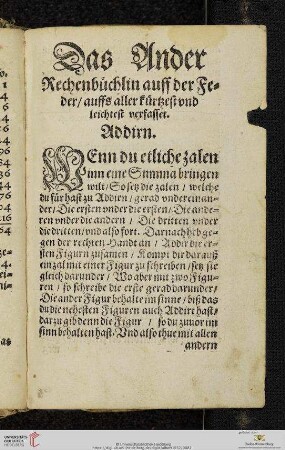 Das Ander
Rechenbüchlin auff der Fe-
der/ auffs aller kürtzest vnd
leichtest verfasset.
Addirn.
WEnn du etliche zalen
inn eine Summa bringen
wilt/ So setz die zalen/ welche
du für hast zu Addirn/ gerad vntereinan-
der/ Die ersten vnder die ersten/ Die ande-
ren vnder die andern/ Die dritten vnder
die dritten/ vnd also fort. Darnach heb ge-
gen der rechten Handt an/ Addir die er-
sten Figurn zusamen/ Kompt dir daraus
ein zal mit einer Figur zu schreiben/ setz sie
gleich darunder/ Wo aber mit zwo Figu-
ren/ so schreibe die erste gerad darunder/
Die ander Figur behalte im sinne/ biß das
du die nehesten Figuren auch Addirt hast/
darzu gib denn die Figur/ so du zuuor im
sinn behalten hast. Vnd also thue mit allen
andern